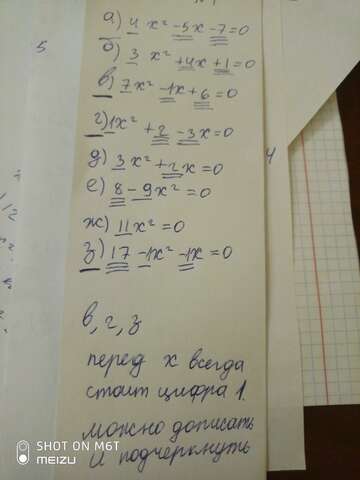 5
а) 4x² -5x -7=0
б) 3x² +4x +1=0
в) 7x² -1x +6=0
г) 1x² +2 -3x=0
д) 3x² +2x=0
е) 8 -9x²=0
ж) 11x²=0
з) 17 -1x² -1x=0
в, г, з
перед x всегда
стоит цифра 1.
можно дописать
и подчеркнуть
4
SHOT ON M6T
meizu